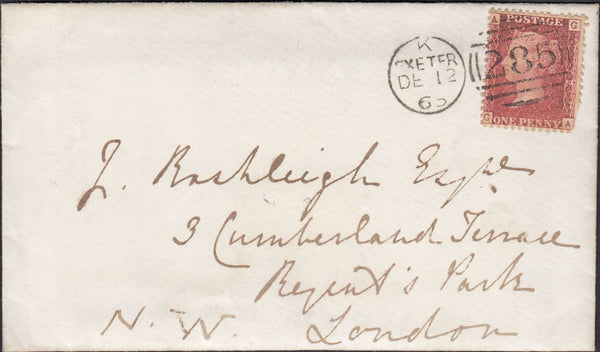 K
EXETER
DE 12
65
285
A G
POSTAGE
G A
ONE PENNY
J. Rashleigh Esqre
3 Cumberland Terrace
Regent's Park
N. W. London